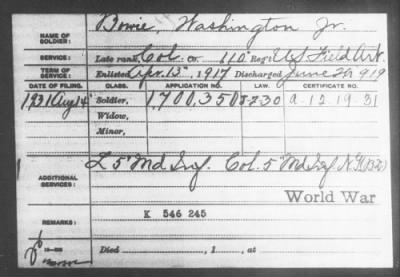 NAME OF SOLDIER: Bowie, Washington Jr.
SERVICE: Late rank, Col. Co. 110" Reg't U.S. Field Art.
TERM OF SERVICE: Enlisted Apr. 13", 1917 Discharged June 1919
DATE OF FILING. CLASS. APPLICATION NO. LAW. CERTIFICATE NO.
1931 Aug 14 Soldier, 1,700,350 5-2-30 a-12 19-31
Widow,
Minor,
ADDITIONAL SERVICES: L 5" Md Inf. Col. 5" Md Inf N.G.
World War
REMARKS: K 546 245
Died , 1 , at